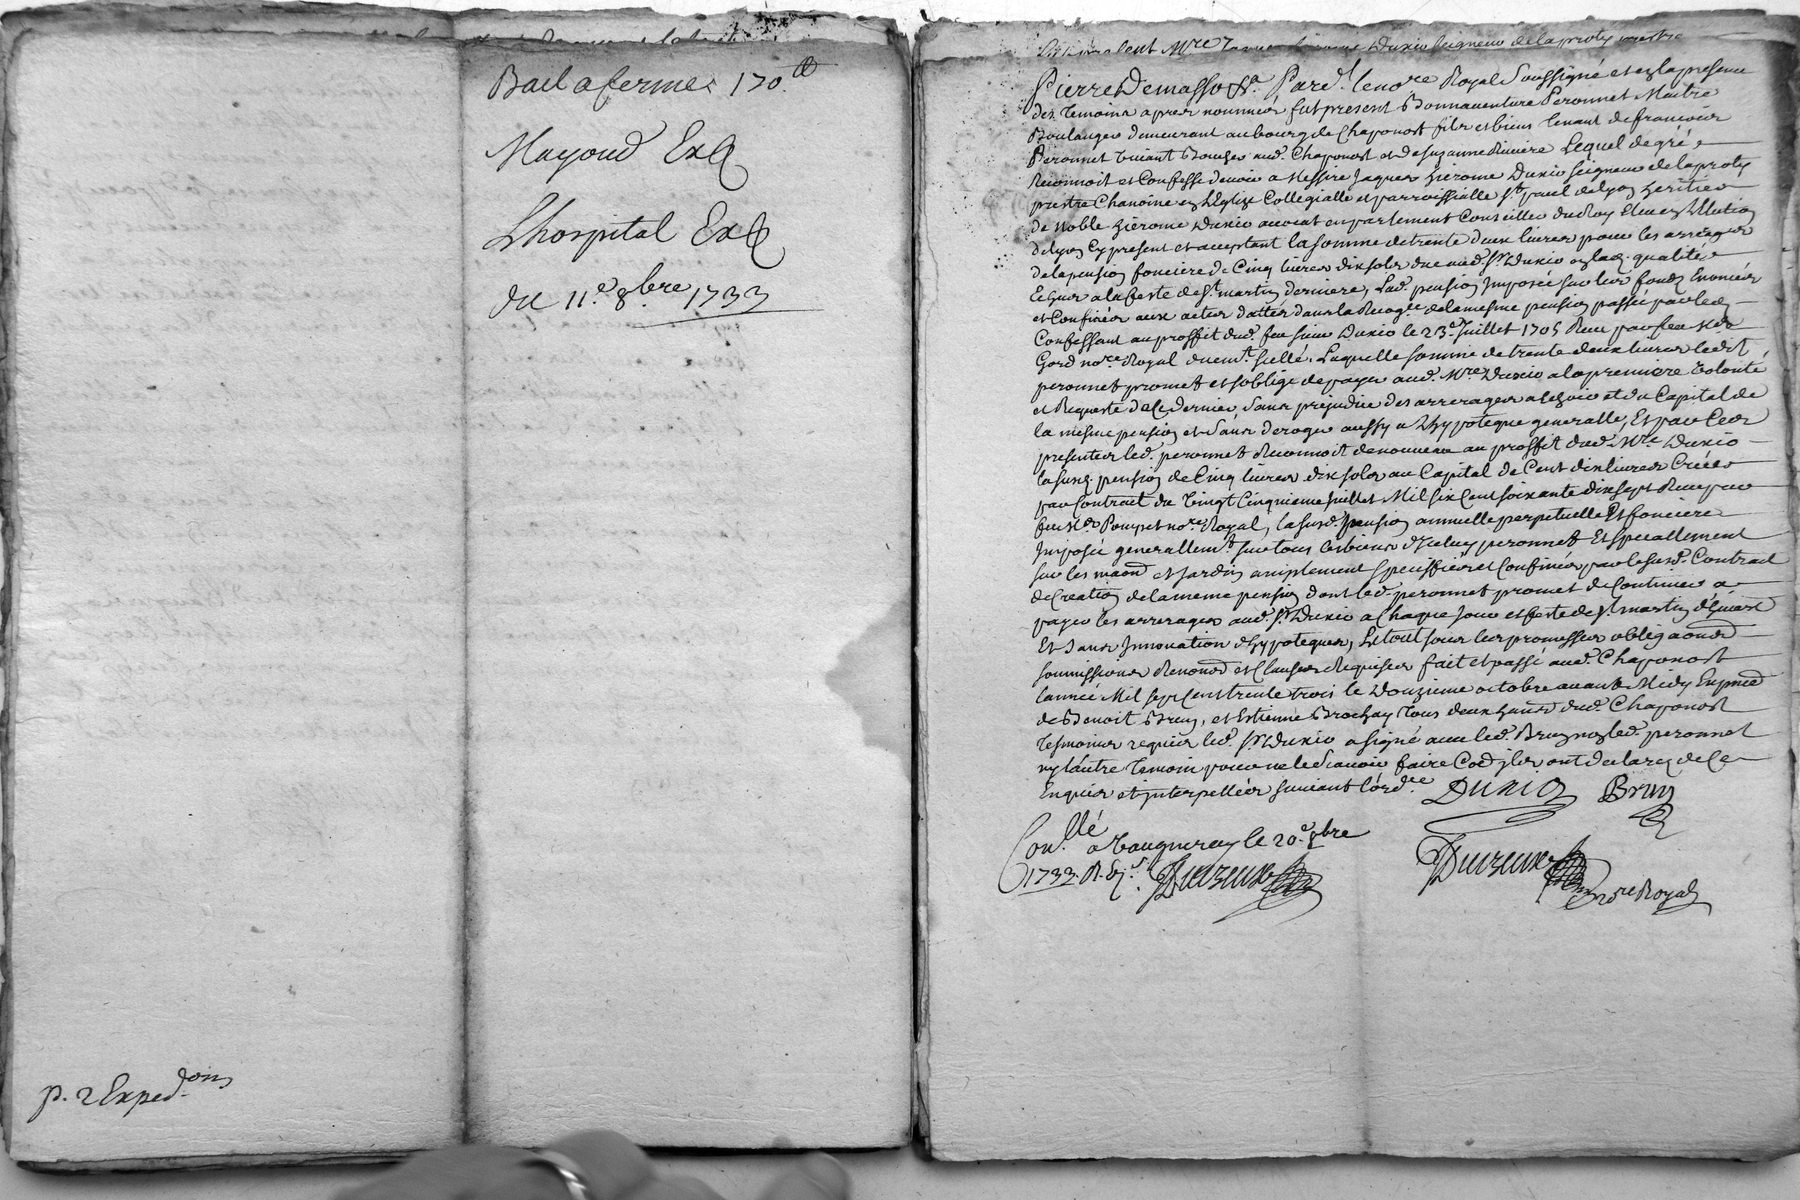 Bail a ferme 170.ll
Mayoud Ex
Lhospital Ex
du 11.e 8bre 1733
p. 2 Exped.ons
Pierre Demasso &.a Pard.t le no.re Royal Soussigné et en la presence
des temoins apres nommés fut present Bonnaventure Peronnet Maitre
Boulanger demeurant au bourg de Chaponost fils et biens tenant de francois
Peronnet vivant Boucher aud. Chaponost et de Suzanne Riviere Lequel de gré
Reconnoit et Confesse devoir a Messire Jaques hierome Duxio seigneur de laproty
prestre Chanoine en L'Eglize Collegialle et parroissialle S.t paul de lyon heritier
de Noble hierome Duxio avocat en parlement Conseiller du Roy Eleu en Lellection
de lyon Cy present et acceptant la somme de trente deux livres pour les arrerages
de la pension fonciere de Cinq livres dix sols due aud. S.r Duxio en lad. qualité
Echus a la feste de S.t martin derniere, Lad. pension Imposée sur leur fonds Enoncés
et Confinés aux actes dattés dans la Recog.ce de la mesme pension passée par led.
Confessant au proffit dud. feu sieur Duxio le 23.e Juillet 1705 Receu par feu M.e
Gord no.re Royal duem.t scellé. Laquelle somme de trente deux livres ledit
peronnet promet et soblige de payer aud. M.re Duxio a la premiere volonté
et Requeste de Ce dernier, Sans prejudice des arrerages a Echoir et du Capital de
la mesme pension et Sans deroger aussy a Lhypoteque generalle, Et par Ces
presentes led. peronnet Reconnoit de nouveau au proffit dud. M.re Duxio
la susd. pension de Cinq livres dix sols au Capital de Cent dix livres Créée
par Contrait du Vingt Cinquieme Juillet Mil six Cent soixante dix sept Receu par
feu M.e Pompet no.re Royal, la susd. pension annuelle perpetuelle Et fonciere
Imposée generallem.t sur tous les biens d'Iceluy peronnet Et speciallement
sur les maon et Jardin amplement speciffiés et Confinés par le susd. Contrait
de Creation de la meme pension dont led. peronnet promet de Continuer a
payer les arrerages aud. S.r Duxio a Chaque Jour et feste de S.t martin d'hivert
Et sans Innovation dhypoteques, Le tout sous les promesses obligaons
soumissions Renons et Clauses Requises fait et passé aud. Chaponost
lanneé Mil sept Cent trente trois le Douzieme octobre avant Midy En pnce
de Benoit Brun, et Estienne Brochay tous deux dud. Chaponost
tesmoins requis led. S.r Duxio a signé avec led. Brun non led. peronnet
ny lautre temoin pour ne le sçavoir faire Co.e ils ont declaré de Ce
Enquis et interpellés suivant lord.ce
Duxio Brun
Con.llé a Vaugneray le 20.e 8bre
1733. R. six s. Duvreux
Duvreux
no.re Royal